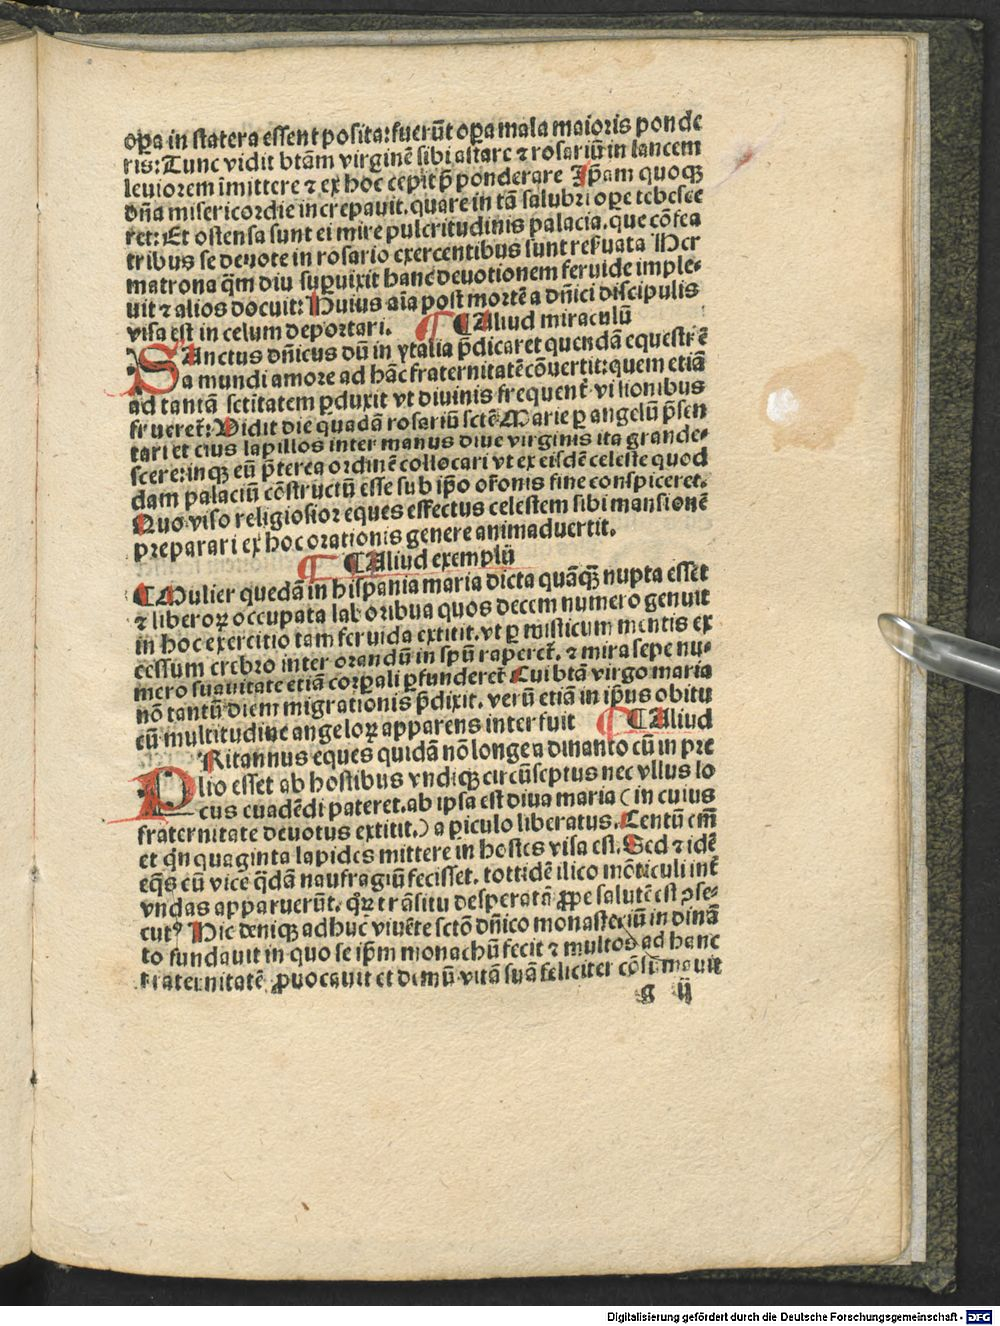 oꝑa in statera essent posita: fuerūt oꝑa mala maioris ponde
ris: Tunc vidit btām virginē sibi astare ⁊ rosariū in lancem
leuiorem īmittere ⁊ ex hoc cepit p̄ ponderare Ip̄am quoqꝫ
dn̄a misericordie increpauit. quare in tā salubri oꝑe tebesce
ret: Et ostensa sunt ei mire pulcritudinis palacia. que cōfra
tribus se deuote in rosario exercentibus sunt rẜuata Hec
matrona q̄m diu suꝑuixit hanc deuotionem feruide imple⸗
uit ⁊ alios docuit: Huius aīa post mortē a dn̄ici discipulis
visa est in celum deportari. ¶ Aliud miraculū
SAnctus dn̄icus dū in ytalia p̄dicaret quendā equestrē
a mundi amore ad hāc fraternitatē cōuertit: quem etiā
ad tantā sctitatem ꝑduxit vt diuinis frequent̄ visionibus
frueret̄: Vidit die quadā rosariū sctē Marie ꝑ angelū p̄sen
tari et eius lapillos inter manus diue virginis ita grande⸗
scere: inqꝫ eū p̄terea ordinē collocari vt ex eisdē celeste quod
dam palaciū cōstructū esse sub ip̄o or̄onis fine conspiceret.
Quo viso religiosior eques effectus celestem sibi mansionē
preparari ex hoc orationis genere animaduertit.
¶ Aliud exemplū
¶ Mulier quedā in hispania maria dicta quāqꝫ nupta esset
⁊ liberoꝝ occupata laboribua quos decem numero genuit
in hoc exercitio tam feruida extitit. vt ꝑ misticum mentis ex
cessum crebro inter orandū in spū raperet̄. ⁊ mira sepe nu⸗
mero suauitate etiā corꝑali ꝑfunderet̄ Cui btā virgo maria
nō tantū diem migrationis p̄dixit. verū etiā in ip̄ius obitu
cū multitudine angeloꝝ apparens interfuit ¶ Aliud
BRitannus eques quidā nō longe a dinanto cū in pre
lio esset ab hostibus vndiqꝫ circūseptus nec vllus lo
cus euadēdi pateret. ab ipsa est diua maria (in cuius
fraternitate deuotus extitit.) a ꝑiculo liberatus. Centū em̄
et qn̄quaginta lapides mittere in hostes visa est. Sed ⁊ idē
eq̄s cū vice q̄dā naufragiū fecisset. tottidē ilico mōticuli int̄
vndas apparuerūt. qͦꝝ trāsitu desperatā ꝓpe salutē est ꝯse⸗
cutꝰ Hic deniqꝫ adhuc viuēte sctō dn̄ico monasteriū in dinā
to fundauit in quo se ip̄m monachū fecit ⁊ multos ad hanc
fraternitatē ꝓuocauit et demū vitā suā feliciter cōsūmauit
g ij
Digitalisierung gefördert durch die Deutsche Forschungsgemeinschaft - DFG